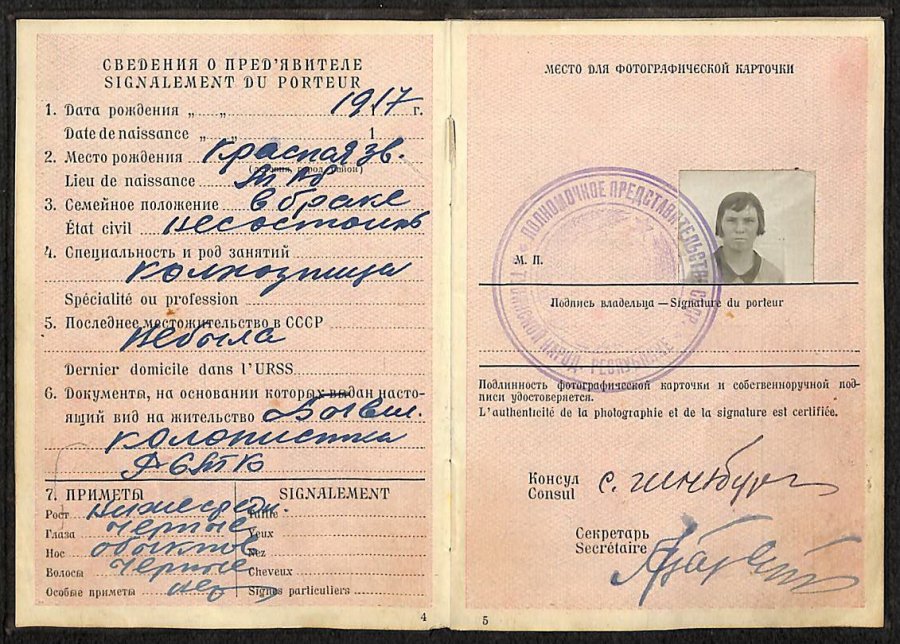 СВЕДЕНИЯ О ПРЕД'ЯВИТЕЛЕ
SIGNALEMENT DU PORTEUR
1. Дата рождения „ „ 1917 г.
Date de naissance „ „ 1
2. Место рождения Красная зв.
Lieu de naissance
3. Семейное положение в браке
État civil не состоит
4. Специальность и род занятий
колхозница
Spécialité ou profession
5. Последнее местожительство в СССР
не была
Dernier domicile dans l'URSS
6. Документы, на основании которых выдан насто-
ящий вид на жительство
колонистка
7. ПРИМЕТЫ SIGNALEMENT
Рост Taille
Глаза черные Yeux
Нос Nez
Волосы черные Cheveux
Особые приметы нет Signes particuliers
4
МЕСТО ДЛЯ ФОТОГРАФИЧЕСКОЙ КАРТОЧКИ
ПОЛНОМОЧНОЕ ПРЕДСТАВИТЕЛЬСТВО СССР
НАРОД. РЕСПУБЛИКЕ
М. П.
Подпись владельца — Signature du porteur
Подлинность фотографической карточки и собственноручной под-
писи удостоверяется.
L'authenticité de la photographie et de la signature est certifiée.
Консул
Consul
Секретарь
Secrétaire
5